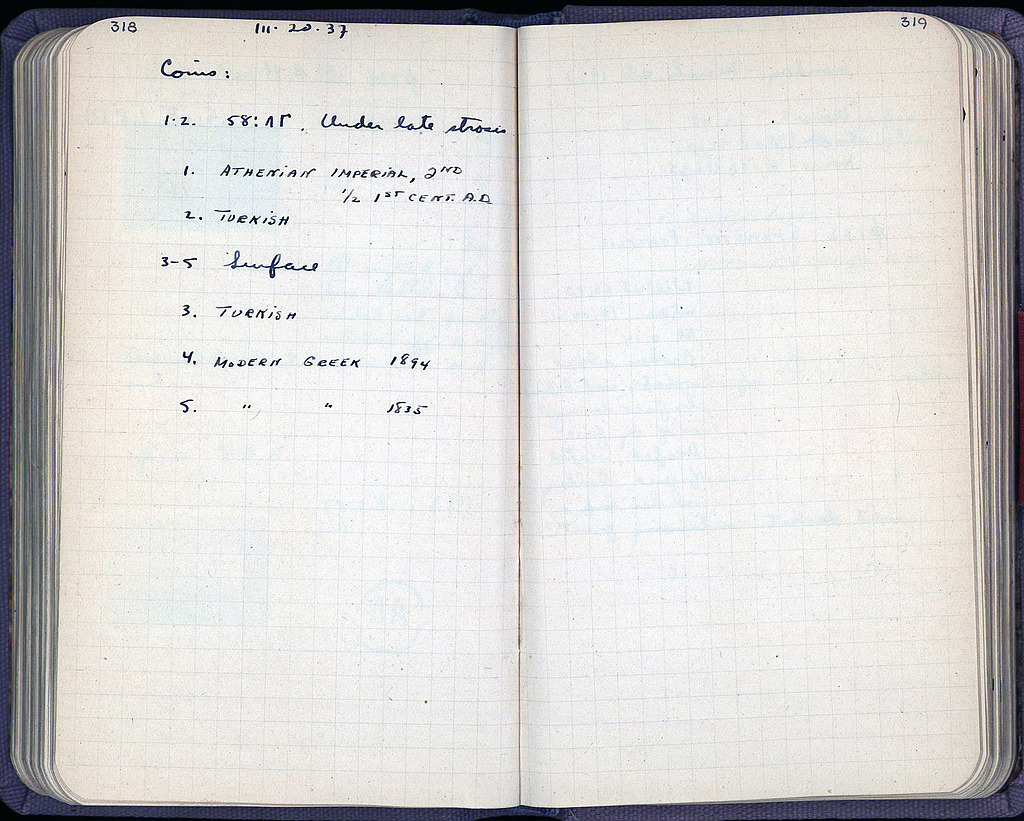 318
III-20-37
319
Coins:
1-2. 58:ΛΓ. Under late strosis
1. ATHENIAN IMPERIAL, 2ND
1/2 1ST CENT. A.D.
2. TURKISH
3-5 Surface
3. TURKISH
4. MODERN GREEK 1894
5. " " 1835